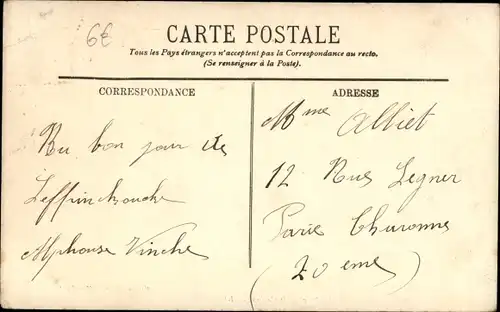 6€
CARTE POSTALE
Tous les Pays étrangers n'acceptent pas la Correspondance au recto.
(Se renseigner à la Poste).
CORRESPONDANCE
ADRESSE
Un bon jour de
Leffrinckoucke
Alphonse Vinche
Mme Albiet
12 Rue Legner
Paris Charonne
(20eme)